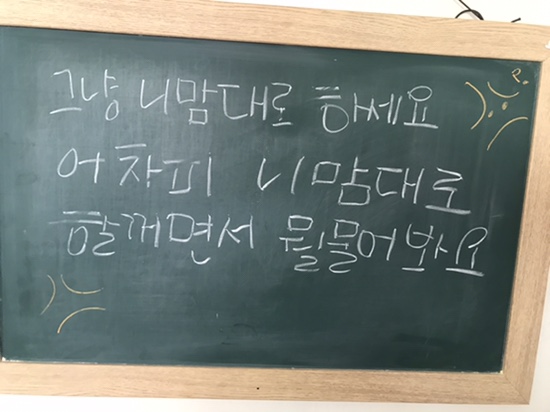 그냥 니맘대로 하세요
어차피 니맘대로
할꺼면서 뭘물어봐요